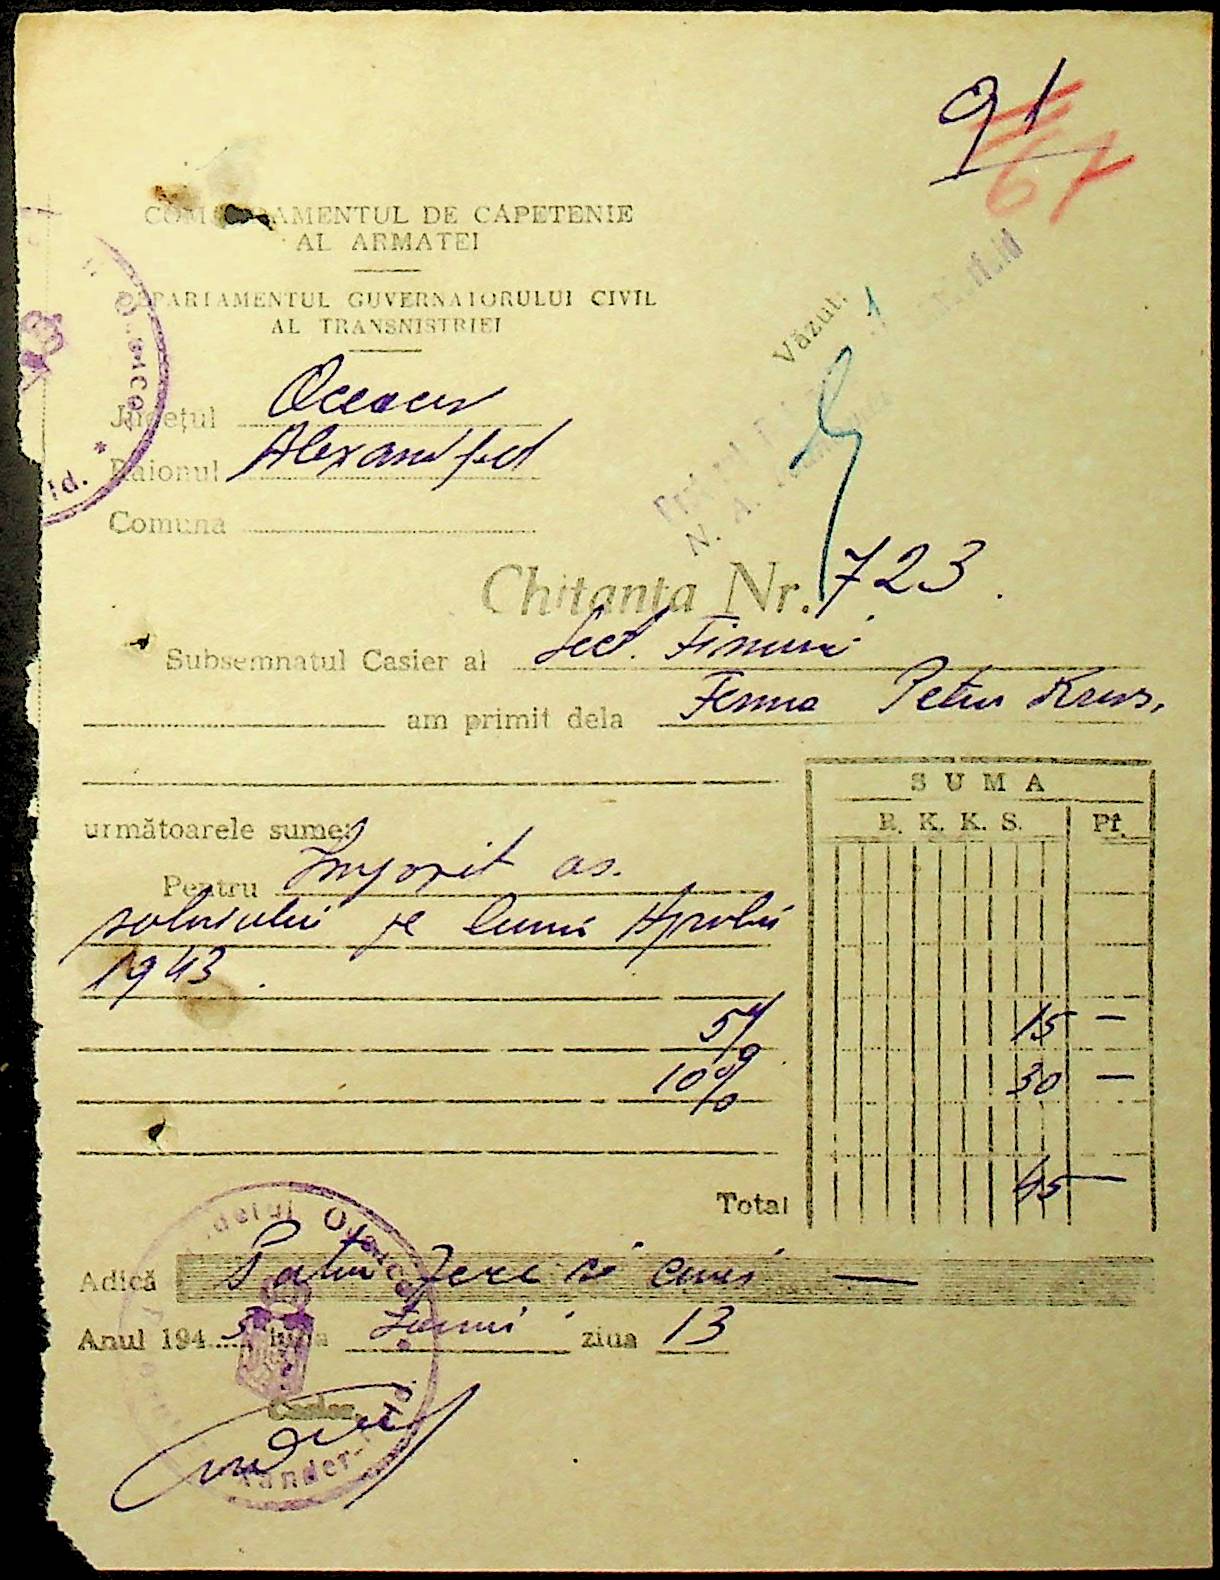 91
61
COMANDAMENTUL DE CAPETENIE
AL ARMATEI
DEPARTAMENTUL GUVERNATORULUI CIVIL
AL TRANSNISTRIEI
Văzut:
Județul Oceacov
Raionul Alexandfeld
Comuna
Chitanța Nr. 723
Subsemnatul Casier al Sect. Financiar
am primit dela Ferma Petru Kraus,
următoarele sume:
SUMA
R. K. K. S. Pf.
Pentru Impozit as.
salariului pe luna Aprilie
1943.
5% 15 —
10% 30 —
Total 45 —
Adică Patru zeci si cinci —
Anul 1943 luna Iunie ziua 13
Casier,